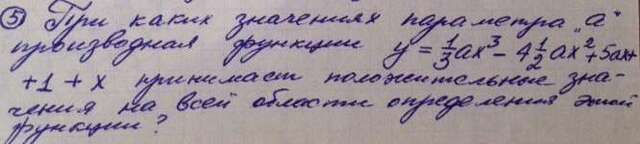 ⑤ При каких значениях параметра „а"
производная функции y = 1/3 ax³ - 4 1/2 ax² + 5ax +
+1 + x принимает положительные зна-
чения на всей области определения этой
функции?